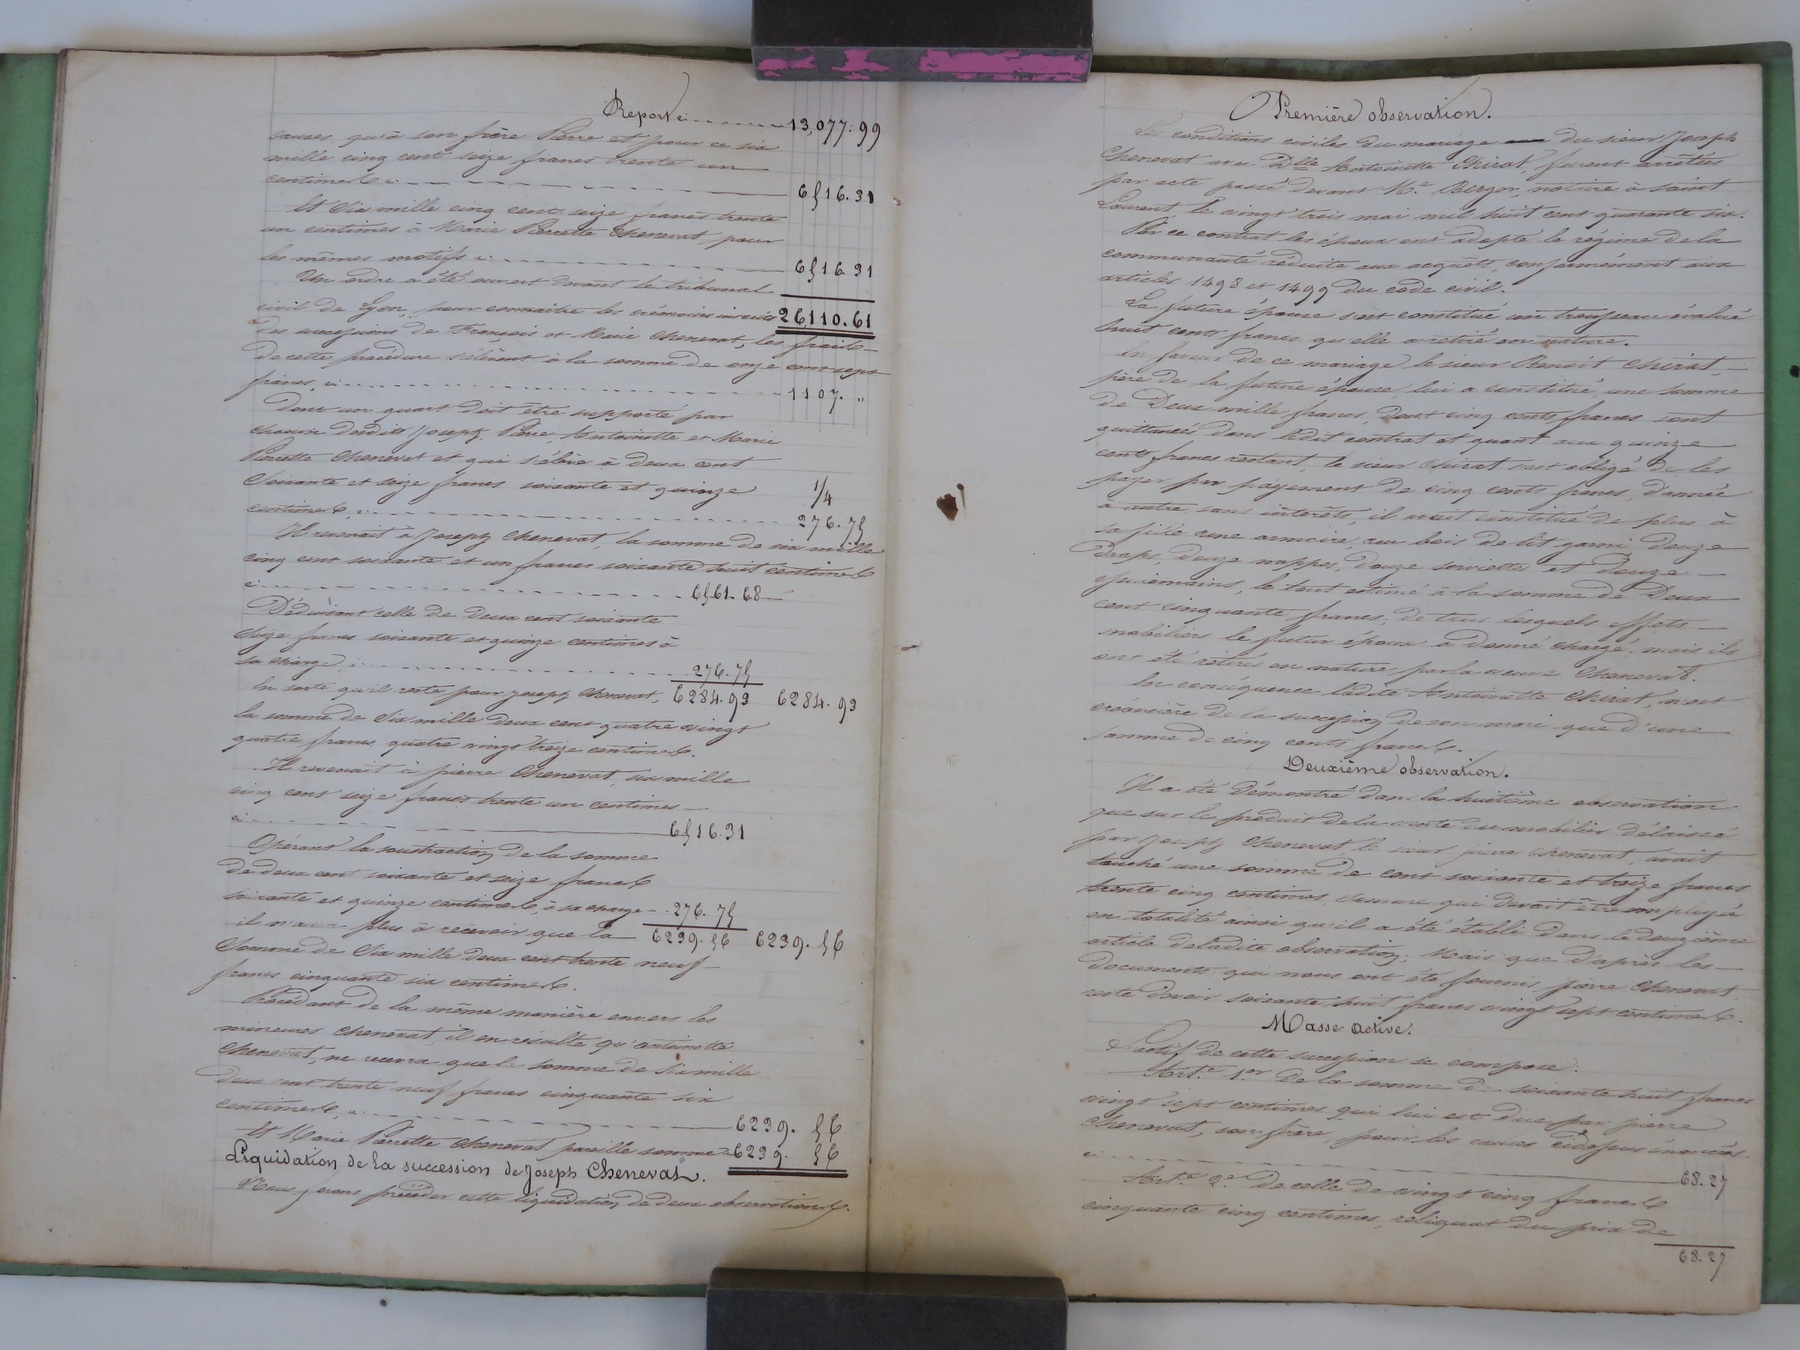 Report ci 13,077.99
causes, qu'à son frère Pierre et pour ce six
mille cinq cent seize francs trente un
centimes ci 6516.31
Et Six mille cinq cent seize francs trente
un centimes à Marie Pierrette Chenevat, pour
les mêmes motifs ci 6516.31
Un ordre a été ouvert devant le tribunal
civil de Lyon, pour connaitre les créanciers inscrits 26110.61
des successions de François et Marie Chenevat, les frais
de cette procédure s'élèvent à la somme de onze cent sept
francs, ci 1107. "
dont un quart doit être supporté par
chacun desdits Joseph, Pierre, Antoinette et Marie
Pierrette Chenevat et qui s'élève à deux cent
Soixante et seize francs soixante et quinze 1/4
centimes, ci 276.75
Il revenait à Joseph Chenevat, la somme de six mille
cinq cent soixante et un francs soixante huit centimes
ci 6561.68
Déduisant celle de deux cent soixante
Seize francs soixante et quinze centimes à
sa charge, ci 276.75
En sorte qu'il reste pour Joseph Chenevat, 6284.93 6284.93
la somme de Six mille deux cent quatre vingt
quatre francs, quatre vingt treize centimes.
Il revenait à pierre Chenevat, six mille
cinq cent seize francs trente un centimes
ci 6516.31
Opérant la soustraction de la somme
de deux cent soixante et seize francs
soixante et quinze centimes, à sa charge 276.75
il n'aura plus à recevoir que la 6239.56 6239.56
Somme de Six mille deux cent trente neuf
francs cinquante six centimes.
Procédant de la même manière envers les
mineures Chenevat, il en résulte qu'antoinette
Chenevat, ne recevra que la somme de Six mille
deux cent trente neuf francs cinquante six
centimes, ci 6239.56
Et Marie Pierrette Chenevat pareille somme 6239.56
Liquidation de la succession de Joseph Chenevat.
Nous ferons précéder cette liquidation de deux observations.
Première observation.
Les conditions civiles du mariage du sieur Joseph
Chenevat avec Dlle Antoinette Chirat, furent arrêtées
par acte passé devant Me Berger, notaire à Saint
Laurent le vingt trois mai mil huit cent quarante six.
Par ce contrat les époux ont adopté le régime de la
communauté réduite aux acquêts, conformément aux
articles 1498 et 1499 du code civil.
La future épouse s'est constitué un trousseau évalué
huit cents francs qu'elle a retiré en nature.
En faveur de ce mariage le sieur Benoît Chirat
père de la future épouse, lui a constitué une somme
de Deux mille francs, dont cinq cents francs sont
quittancés dans ledit contrat et quant aux quinze
cents francs restant, le sieur Chirat s'est obligé de les
payer par payement de cinq cents francs, d'année
à autre, sans intérêts, il avait constitué de plus à
sa fille une armoire, un bois de lit garni, douze
draps, douze nappes, douze serviettes et douze
essuiemains, le tout estimé à la somme de Deux
cent cinquante francs, de tous lesquels effets
mobiliers le futur époux a demeuré chargé, mais ils
ont été retirés en nature par la veuve Chenevat.
En conséquence ladite Antoinette Chirat, n'est
créancière de la succession de son mari que d'une
somme de cinq cents francs.
Deuxième observation.
Il a été démontré dans la huitième observation
que sur le produit de la vente du mobilier délaissé
par Joseph Chenevat le sieur pierre Chenevat, avait
touché une somme de cent soixante et treize francs
trente cinq centimes, somme qui devait être employée
en totalité ainsi qu'il a été établi dans le douzième
article de ladite observation; Mais que d'après les
documents qui nous ont été fournis, pierre Chenevat
reste devoir soixante huit francs vingt sept centimes.
Masse active.
L'actif de cette succession se compose:
Art. 1er De la somme de soixante huit francs
vingt sept centimes qui lui est due par pierre
Chenevat, son frère, pour les causes cidessus énoncées
ci 68.27
Art. 2e De celle de vingt cinq francs
cinquante cinq centimes, reliquat du prix de
68.27